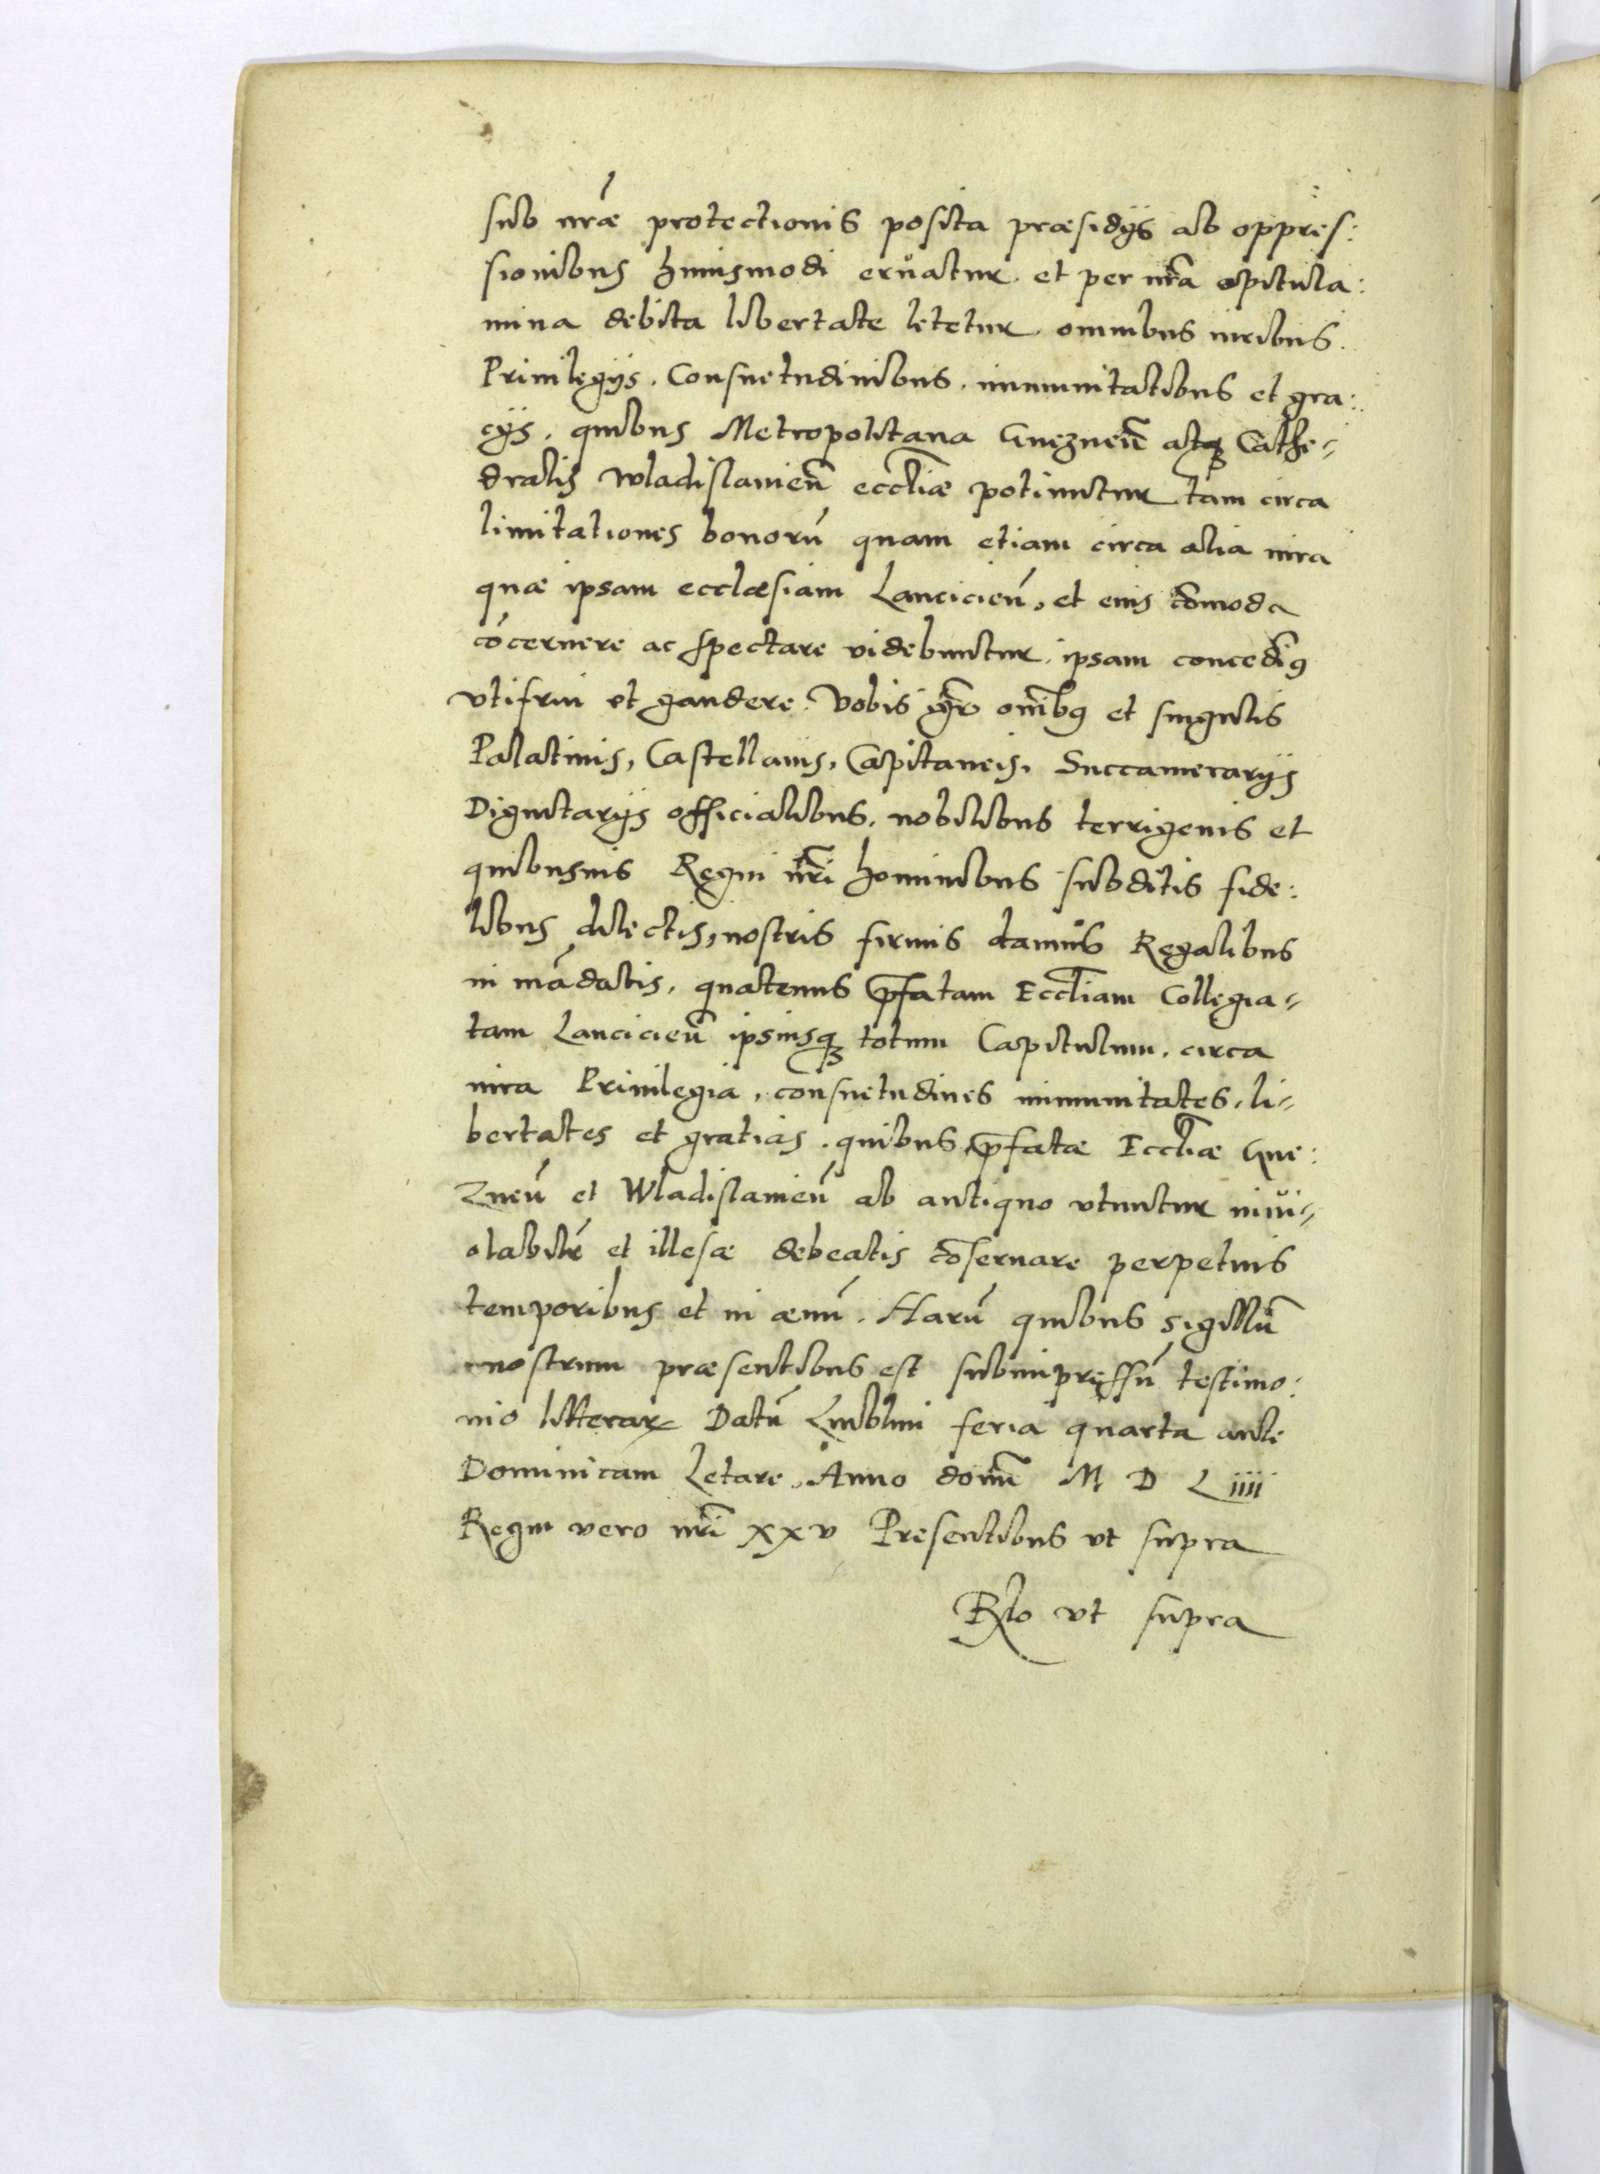 sub nr̃æ protectionis posita præsidÿs ab oppres:
sionibus huiusmodi eruatur. et per nr̃a opitula:
mina debita libertate letetur. omnibus iuribus.
Priuilegÿs. Consuetudinibus. immunitatibus et gra:
cÿs. quibus Metropolitana Gnezneñ atq Cathe-
dralis Wladislauieñ eccl̃iæ potiuntur tam circa
limitationes bonorũ quam etiam circa alia iura
quæ ipsam ecclæsiam Lancicieñ, et eius cõmoda
cõcernere ac spectare videbuntur. ipsam concedim9
vti frui et gaudere. Vobis igr̃ om̃ib9 et singulis
Palatinis, Castellanis, Capitaneis, Succamerarÿs
Dignitarÿs officialibus. nobilibus terrigenis et
quibusuis Regni nr̃i hominibus subditis fide:
libus dilectis, nostris firmis damus Regalibus
in mãdatis. quatenus p̃fatam Eccl̃iam Collegia-
tam Lancicieñ ipsiusq totum Capitulum. circa
iura Priuilegia, consuetudines immunitates, li-
bertates et gratias. quibus p̃fatæ Eccl̃iæ Gne:
zneñ et Wladislauieñ ab antiquo vtuntur inui-
olabilr̃ et illesæ debeatis cõseruare perpetuis
temporibus et in æuũ. Harũ quibus sigillũ
nostrum præsentibus est subimpressũ testimo:
nio litterar Datũ Lublini feria quarta ante
Dominicam Letare. Anno domĩ M D L iiii
Regni vero nr̃i xxv Presentibus vt supra
Rlo vt supra